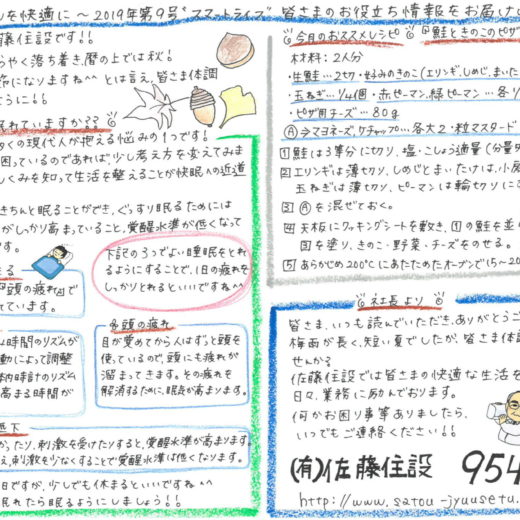 を快適に～2019年第9号"スマートライフ"皆さまのお役立ち情報をお届け
藤住設です!!
やく落ち着き、暦の上では秋!
になりますね^^ とは言え、皆さま体調
ように!!
れていますか??
くの現代人が抱える悩みの1つです!
困っているのであれば、少し考え方を変えてみま
しくみを知って生活を整えることが快眠への近道
きちんと眠ることができ、ぐっすり眠るためには
がしっかり高まっていること、覚醒水準が低くなって
です。
下記の3つでよい睡眠をとれ
るようにすることで、1日の疲れを
しっかりとれるといいですね^^
る
『頭の疲れ』で
ています。
4時間のリズムが
動によって調整
内時計のリズム
高まる時間が
②頭の疲れ
目が覚めてから人はずっと頭を
使っているので、頭にも疲れが
溜まってきます。その疲れを
解消するために、眠気が高まります。
低下
かったり、刺激を受けたりすると、覚醒水準が高まります。
え、刺激を少なくすることで覚醒水準は低くなります。
日ですが、少しでも休まるといいですね^^
眠れたら眠るようにしましょう!!
今月のおススメレシピ 『鮭ときのこのピザ
材料:2人分
・生鮭…2切・好みのきのこ(エリンギ、しめじ、まいた
・玉ねぎ…1/4個・赤ピーマン、緑ピーマン…各1/
・ピザ用チーズ…80g
Ⓐ→マヨネーズ、ケチャップ…各大2・粒マスタード
1 鮭は3等分に切り、塩・こしょう適量(分量外
2 エリンギは薄切り、しめじとまいたけは、小房
玉ねぎは薄切り、ピーマンは輪切りに
3 Ⓐを混ぜておく。
4 天板にクッキングシートを敷き、1の鮭を並
3を塗り、きのこ・野菜・チーズをのせる。
5 あらかじめ200℃にあたためたオーブンで15～20
社長より
皆さま、いつも読んでいただき、ありがとうご
梅雨が長く、短い夏でしたが、皆さま体
せんか?
佐藤住設では皆さまの快適な生活を
日々、業務に励んでおります。
何かお困り事等ありましたら、
いつでもご連絡ください!!
(有)佐藤住設 954
http://www.satou-jyuusetu.